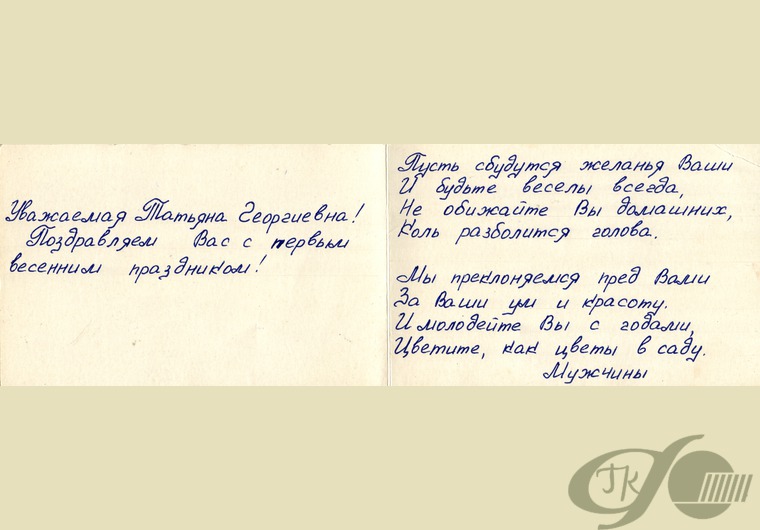 Уважаемая Татьяна Георгиевна!
Поздравляем Вас с первым
весенним праздником!
Пусть сбудутся желанья Ваши
И будьте веселы всегда,
Не обижайте Вы домашних,
Коль разболится голова.
Мы преклоняемся пред Вами
За Ваши ум и красоту.
И молодейте Вы с годами,
Цветите, как цветы в саду.
Мужчины
ГК